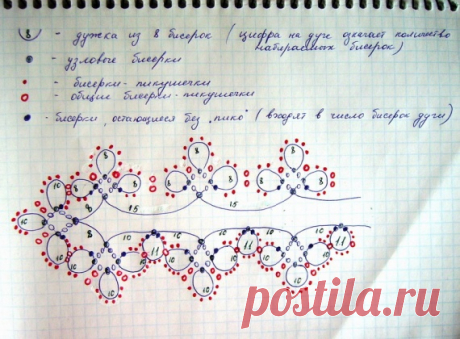 8 - дужка из 8 бисерок ( цифра на дуге означает количество
набираемых бисерок)
- узловые бисерки
- бисерки-пикушечки
- общие бисерки-пикушечки
- бисерки, остающиеся без "пико" ( входят в число бисерок дуги)
8 8 8
10 8 8 8 8 8 8
8 15 15
10
8 10 10 10 10 10
11 11 11
10 10 10 10 10 10
10 10 10
postila.ru